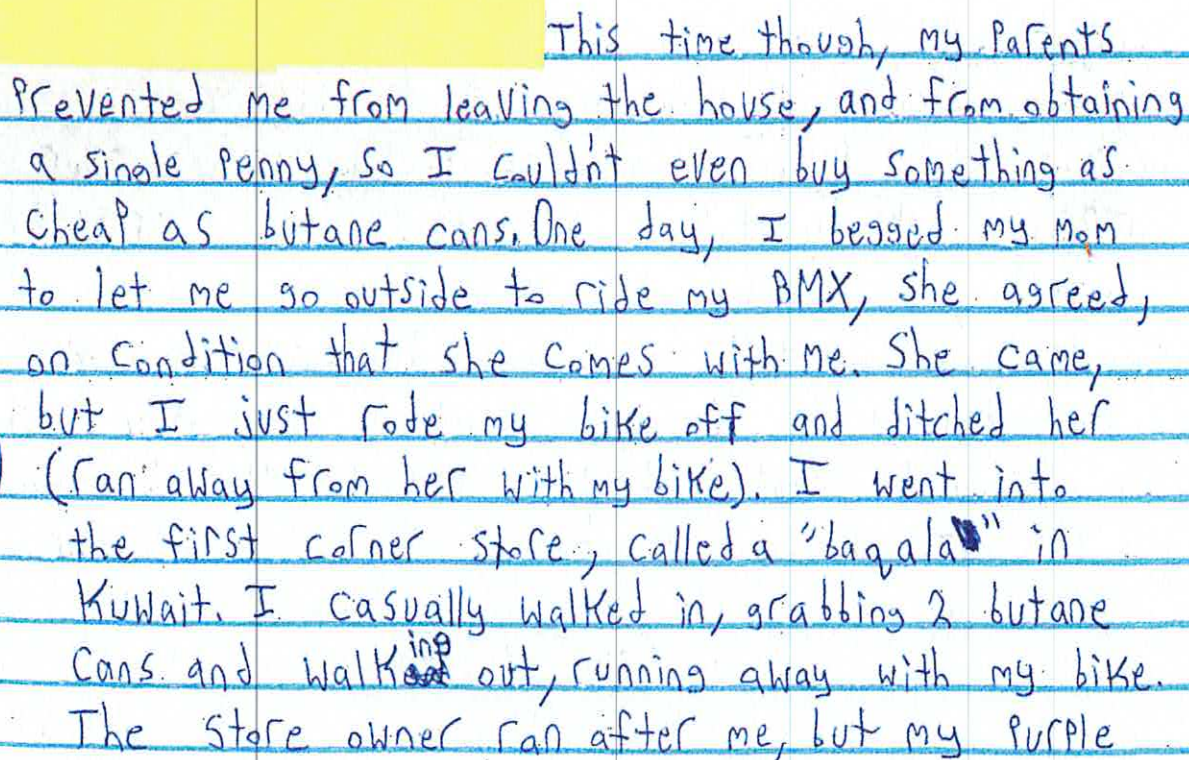 This time though, my Parents
Prevented me from leaving the house, and from obtaining
a single Penny, so I couldn't even buy something as
cheap as butane cans. One day, I begged my mom
to let me go outside to ride my BMX, she agreed,
on condition that she comes with me. She came,
but I just rode my bike off and ditched her
(ran away from her with my bike). I went into
the first corner store, called a "baqala" in
Kuwait. I casually walked in, grabbing 2 butane
cans and walking out, running away with my bike.
The store owner ran after me, but my Purple